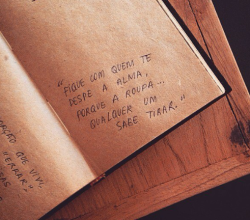 "FIQUE COM QUEM TE
DESPE A ALMA,
PORQUE A ROUPA...
QUALQUER UM
SABE TIRAR."
QUE VIVI,